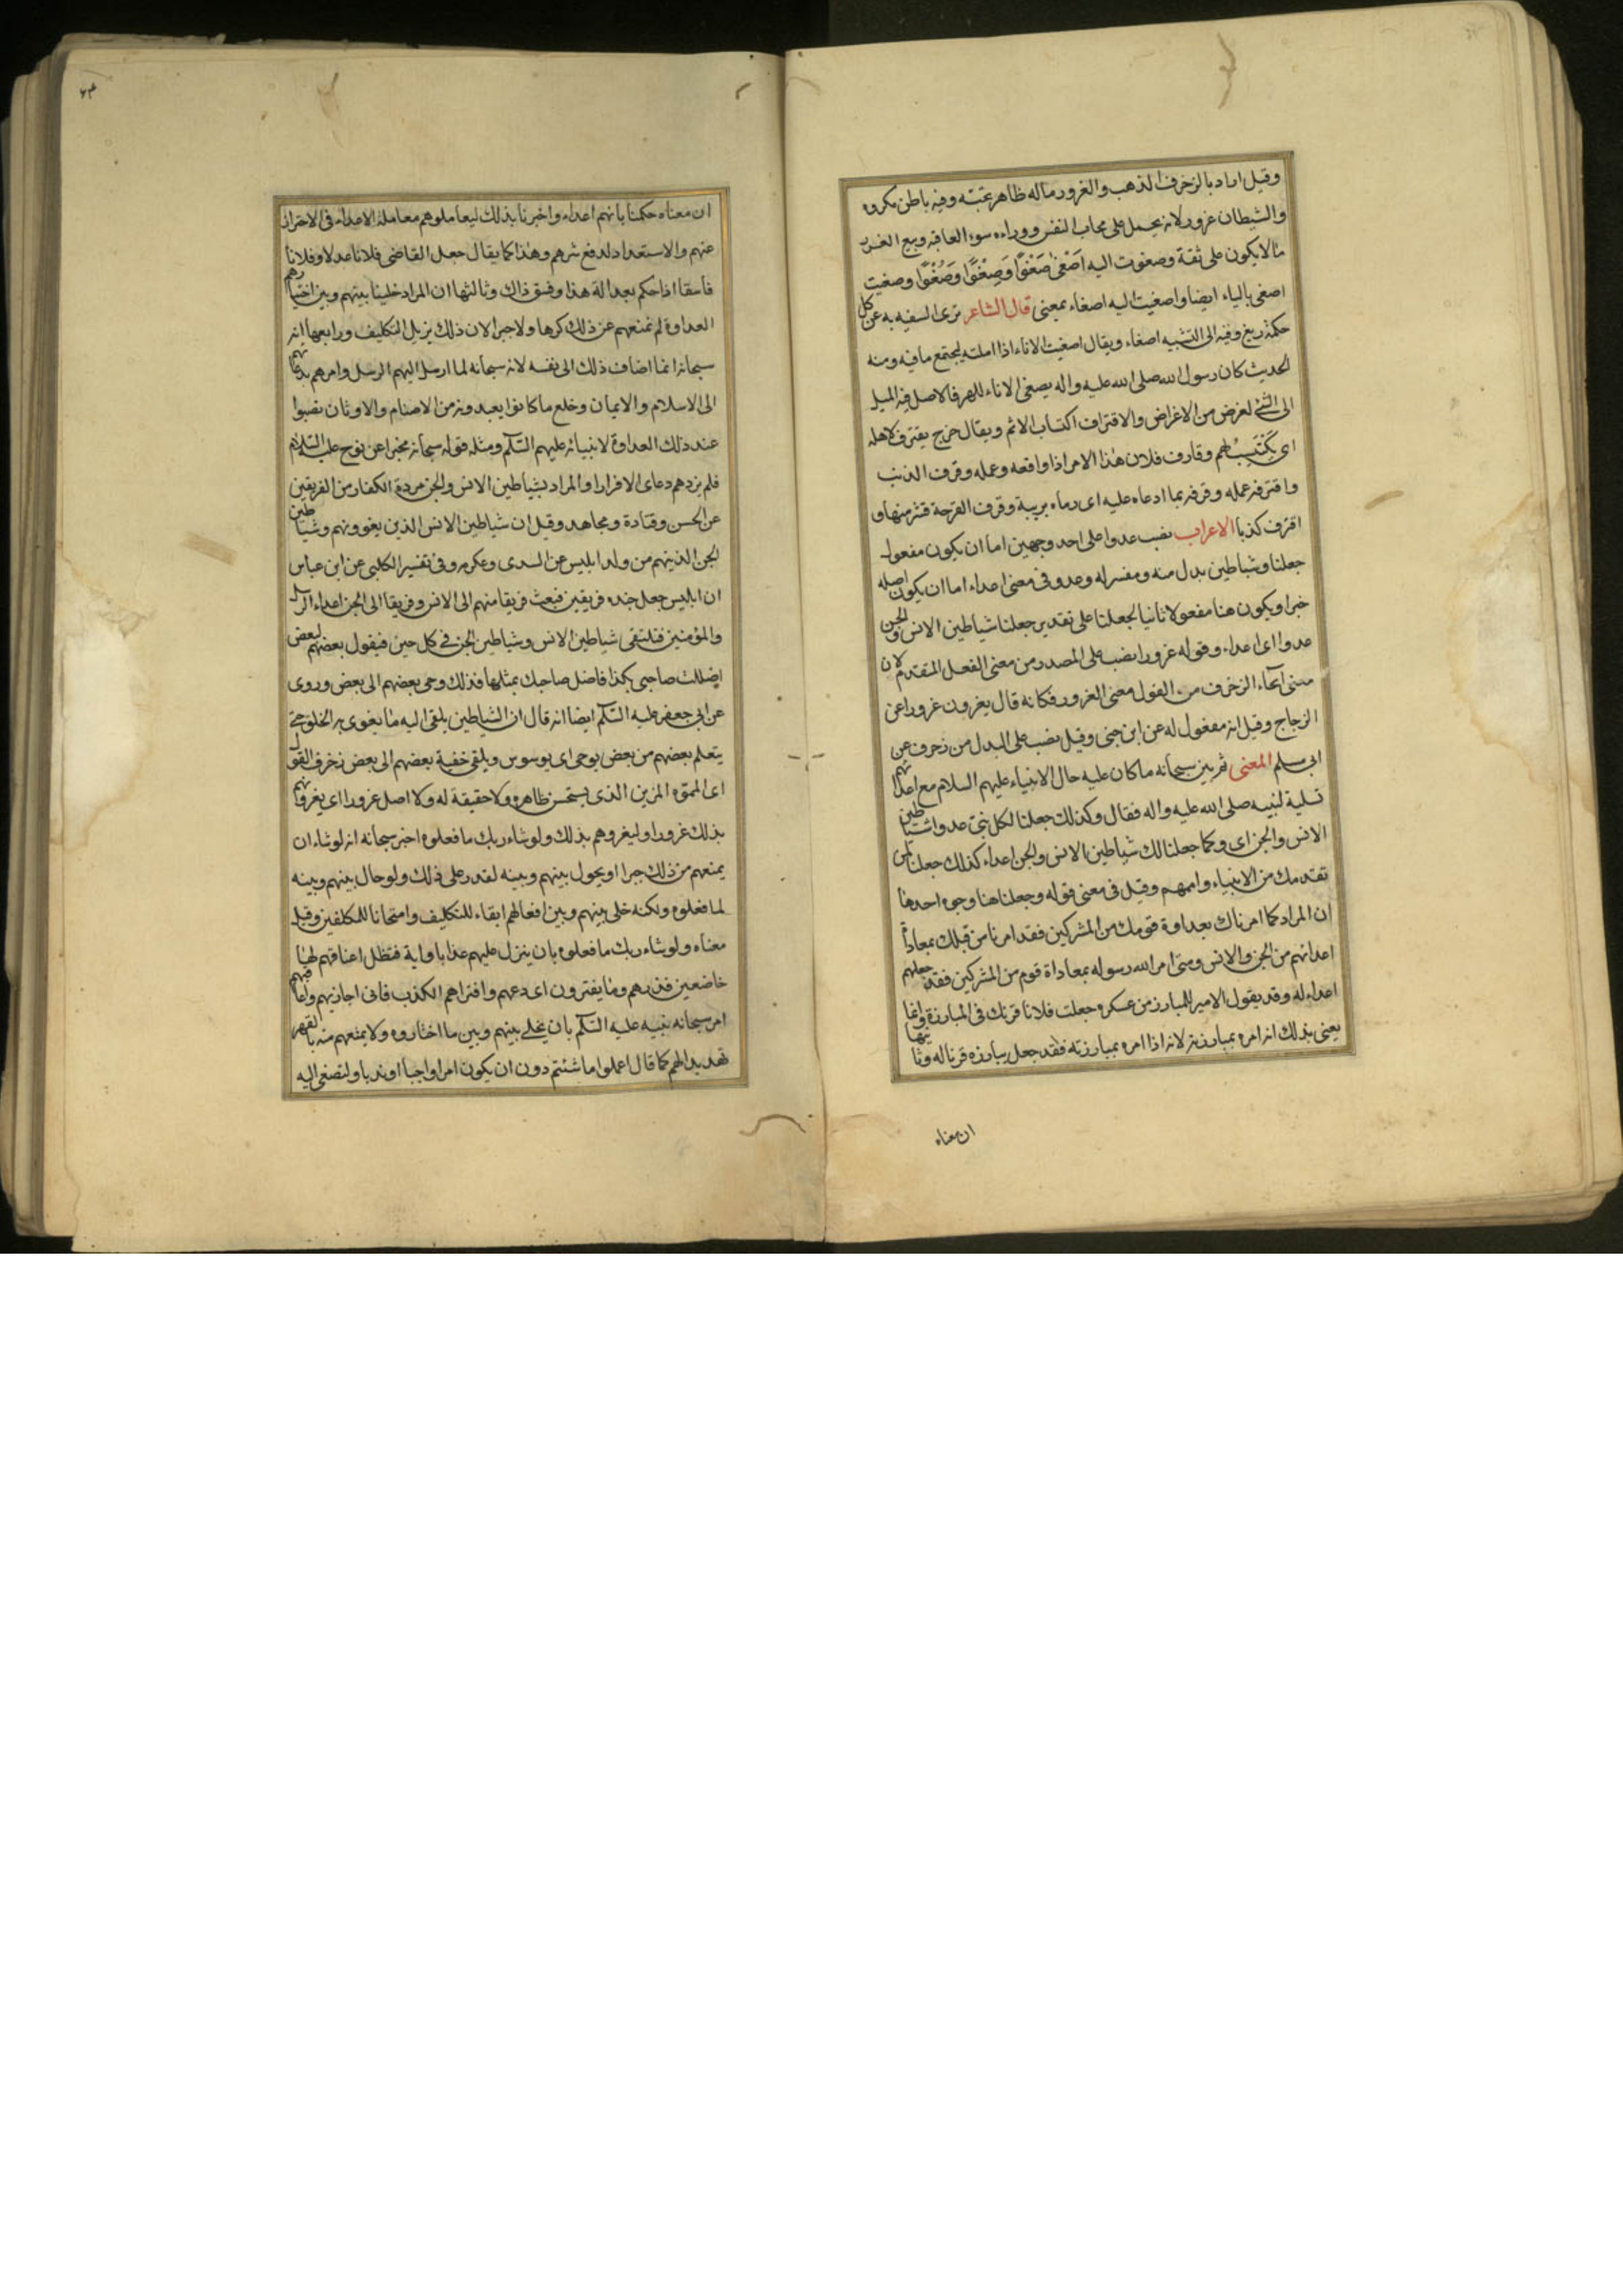 وقيل اراد بالزخرف الذهب والغرور ماله ظاهر تحبته وفيه باطن مكروه
والشيطان غرور لانه يحمل على محاب النفس ووراءه سوء العاقبه وبيع الغرر
ما لا يكون على ثقة وصغوت اليه اصغى صَغْوًا وَصِغْوًا وَصُغْوًا وصغيت
اصغى بالياء ايضا واصغيت اليه اصغاء بمعنى قال الشاعر ترى السفيه به عن كل
حكمة زيغ وفيه الى التشبيه اصغاء ويقال اصغيت الاناء اذا املته ليجتمع ما فيه ومنه
الحديث كان رسول الله صلى الله عليه واله يصغى الاناء للهر فالاصل فيه الميل
الى الشئ لغرض من الاغراض والاقتراف اكتساب الاثم ويقال خرج يقترف لاهله
اى يَكْتَسِبُ لهم وقارف فلان هذا الامر اذا واقعه وعمله وقرف الذنب
واقترفه عمله وقرفه بما ادعاه عليه اى رماه بريبة وقرف القرحة قشر منها و
اقترف كذبا الاعراب نصب عدوا على احد وجهين اما ان يكون مفعول
جعلنا وشياطين بدل منه ومفسر له وعدو فى معنى اعداء اما ان يكون اصله
خبرا ويكون هنا مفعولا ثانيا لجعلنا على تقدير جعلنا شياطين الانس والجن
عدوا اى اعداء وقوله غرورا نصب على المصدر من معنى الفعل المقدم لان
معنى ايحاء الزخرف من القول معنى الغرور فكانه قال يغرون غرورا عن
الزجاج وقيل انه مفعول له عن ابن جنى وقيل نصب على البدل من زخرف عن
ابى مسلم المعنى ثم بين سبحانه ما كان عليه حال الانبياء عليهم السلام مع اعدائهم
تسلية لنبيه صلى الله عليه واله فقال وكذلك جعلنا لكل نبى عدوا شياطين
الانس والجن اى وكما جعلنا لك شياطين الانس والجن اعداء كذلك جعلنا لمن
تقدمك من الانبياء واممهم وقيل فى معنى قوله وجعلنا هنا وجوه احدها
ان المراد كما امرناك بعداوة قومك من المشركين فقد امرنا من قبلك بمعاداة
اعدائهم من الجن والانس ومتى امر الله رسوله بمعاداة قوم من المشركين فقد جعلهم
اعداء له وقد يقول الامير للمبارز من عسكره جعلت فلانا قرنك فى المبارزة وانما
يعنى بذلك انه امره بمبارزته لانه اذا امره بمبارزته فقد جعل يبارزه قرنا له وثانيها
ان معناه
ان معناه حكمنا بانهم اعداء واخبرنا بذلك ليعاملوهم معاملة الاعداء فى الاحتراز
عنهم والاستعداد لدفع شرهم وهذا كما يقال جعل القاضى فلانا عدلا وفلانا
فاسقا اذا حكم بعدالة هذا وفسق ذاك وثالثها ان المراد خلينا بينهم وبين اختيارهم
العداوة لم نمنعهم عن ذلك كرها ولا جبرا لان ذلك يزيل التكليف ورابعها انه
سبحانه انما اضاف ذلك الى نفسه لانه سبحانه لما ارسل اليهم الرسل وامرهم بدعائهم
الى الاسلام والايمان وخلع ما كانوا يعبدونه من الاصنام والاوثان نصبوا
عند ذلك العداوة لانبيائه عليهم السلم ومثله قوله سبحانه مخبرا عن نوح عليه السلام
فلم يزدهم دعاى الا فرارا والمراد بشياطين الانس والجن مردة الكفار من الفريقين
عن الحسن وقتادة ومجاهد وقيل ان شياطين الانس الذين يغوونهم وشياطين
الجن الذين هم من ولد ابليس عن السدى وعكرمه وفى تفسير الكلبى عن ابن عباس
ان ابليس جعل جنده فريقين فبعث فريقا منهم الى الانس وفريقا الى الجن اعداء الرسل
والمؤمنين فتلتقى شياطين الانس وشياطين الجن فى كل حين فيقول بعضهم لبعض
اضللت صاحبى بكذا فاضل صاحبك بمثلها فذلك وحى بعضهم الى بعض وروى
عن ابى جعفر عليه السلم ايضا انه قال ان الشياطين يلقى اليه ما يغوى به الخلق حتى
يتعلم بعضهم من بعض يوحى اى يوسوس ويلقى خفية بعضهم الى بعض زخرف القول
اى المموه المزين الذى يستحسن ظاهره ولا حقيقة له ولا اصل غرورا اى يغرونهم
بذلك غرورا وليغروهم بذلك ولو شاء ربك ما فعلوه اخبر سبحانه انه لو شاء ان
يمنعهم من ذلك جبرا او يحول بينهم وبينه لقدر على ذلك ولو حال بينهم وبينه
لما فعلوه ولكنه خلى بينهم وبين افعالهم ابقاء للتكليف وامتحانا للمكلفين وقيل
معناه ولو شاء ربك ما فعلوه بان ينزل عليهم عذابا واية فتظل اعناقهم لها
خاضعين فذرهم وما يفترون اى دعهم وافتراهم الكذب فانى اجازيهم واعاقبهم
امر سبحانه نبيه عليه السلم بان يخلى بينهم وبين ما اختاروه ولا يمنعهم منه بالقهر
تهديدا لهم كما قال اعملوا ما شئتم دون ان يكون امرا واجبا او ندبا ولتصغى اليه